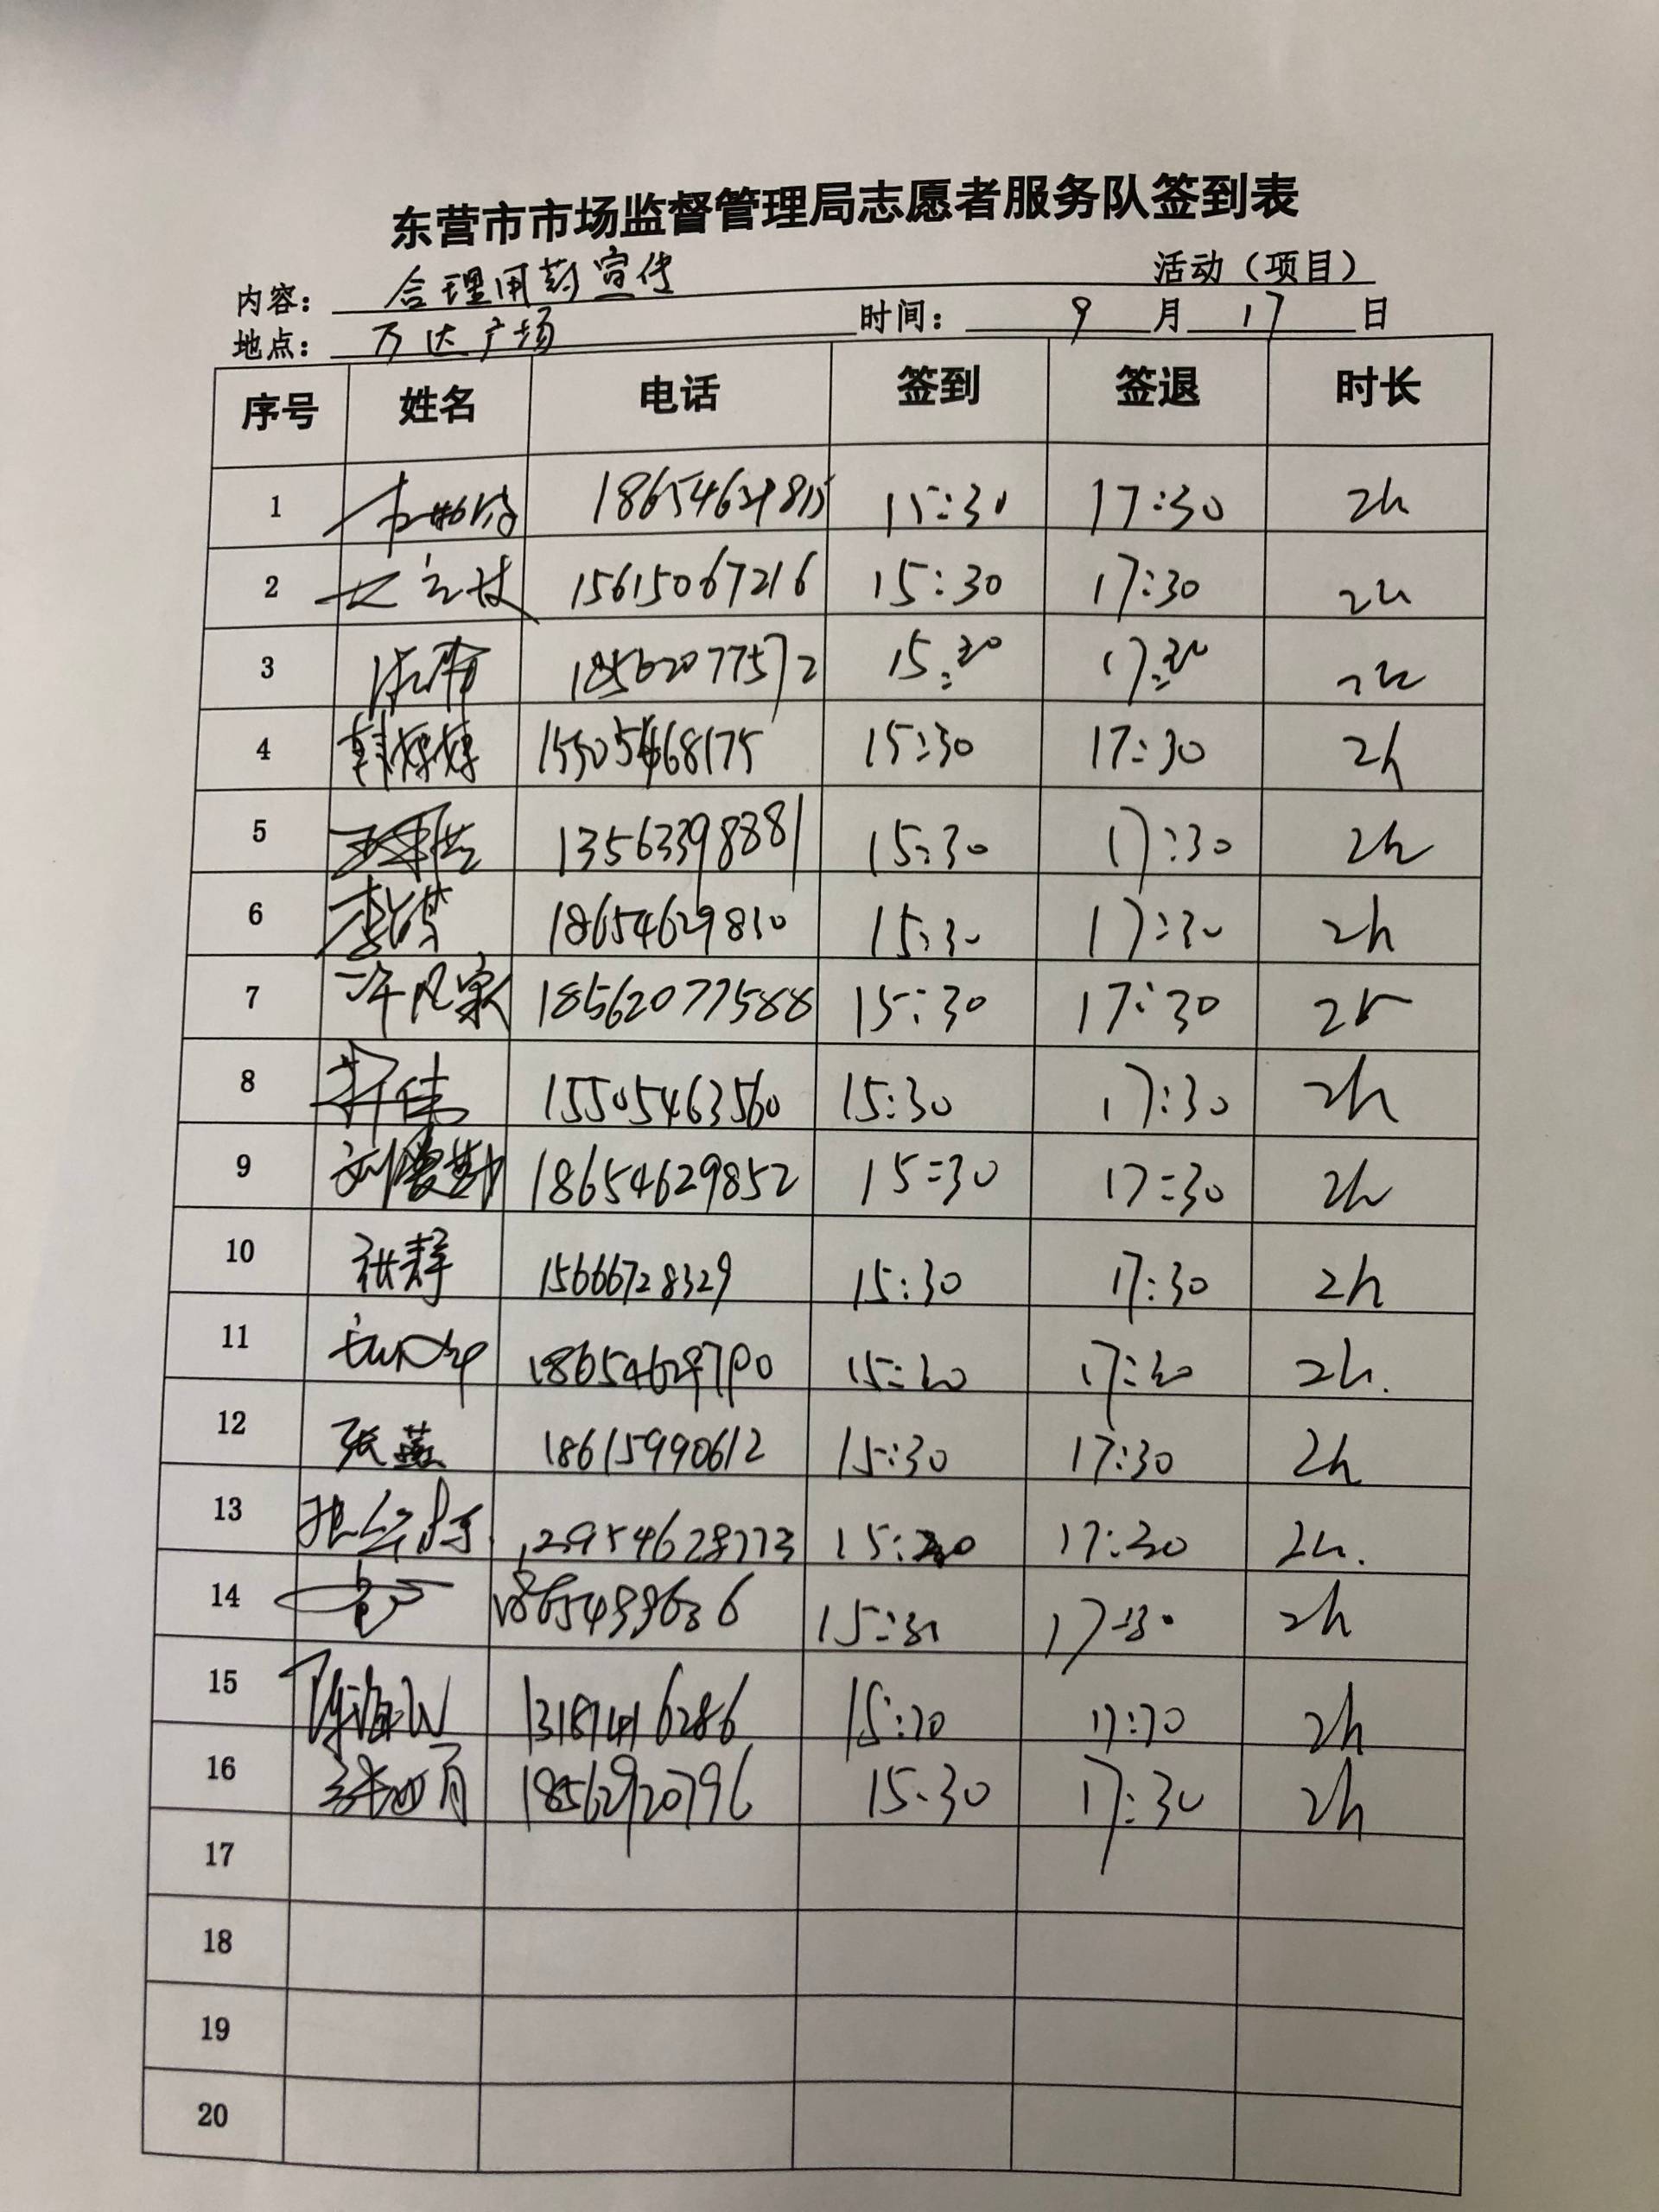 东营市市场监督管理局志愿者服务队签到表
内容: 合理用药宣传 活动（项目）
地点: 万达广场 时间: 9 月 17 日
序号 姓名 电话 签到 签退 时长
1 15:30 17:30 2h
2 15615067216 15:30 17:30 2h
3 18562077572 15:30 17:30 2h
4 韩婷婷 15505468175 15:30 17:30 2h
5 13563398881 15:30 17:30 2h
6 18654629810 15:30 17:30 2h
7 许凡家 18562077588 15:30 17:30 2h
8 15505463560 15:30 17:30 2h
9 18654629852 15:30 17:30 2h
10 张静 15666728329 15:30 17:30 2h
11 15:30 17:30 2h.
12 张燕 18615990612 15:30 17:30 2h
13 15:30 17:30 2h.
14 15:30 17:30 2h
15 15:30 17:30 2h
16 18562920796 15:30 17:30 2h
17
18
19
20